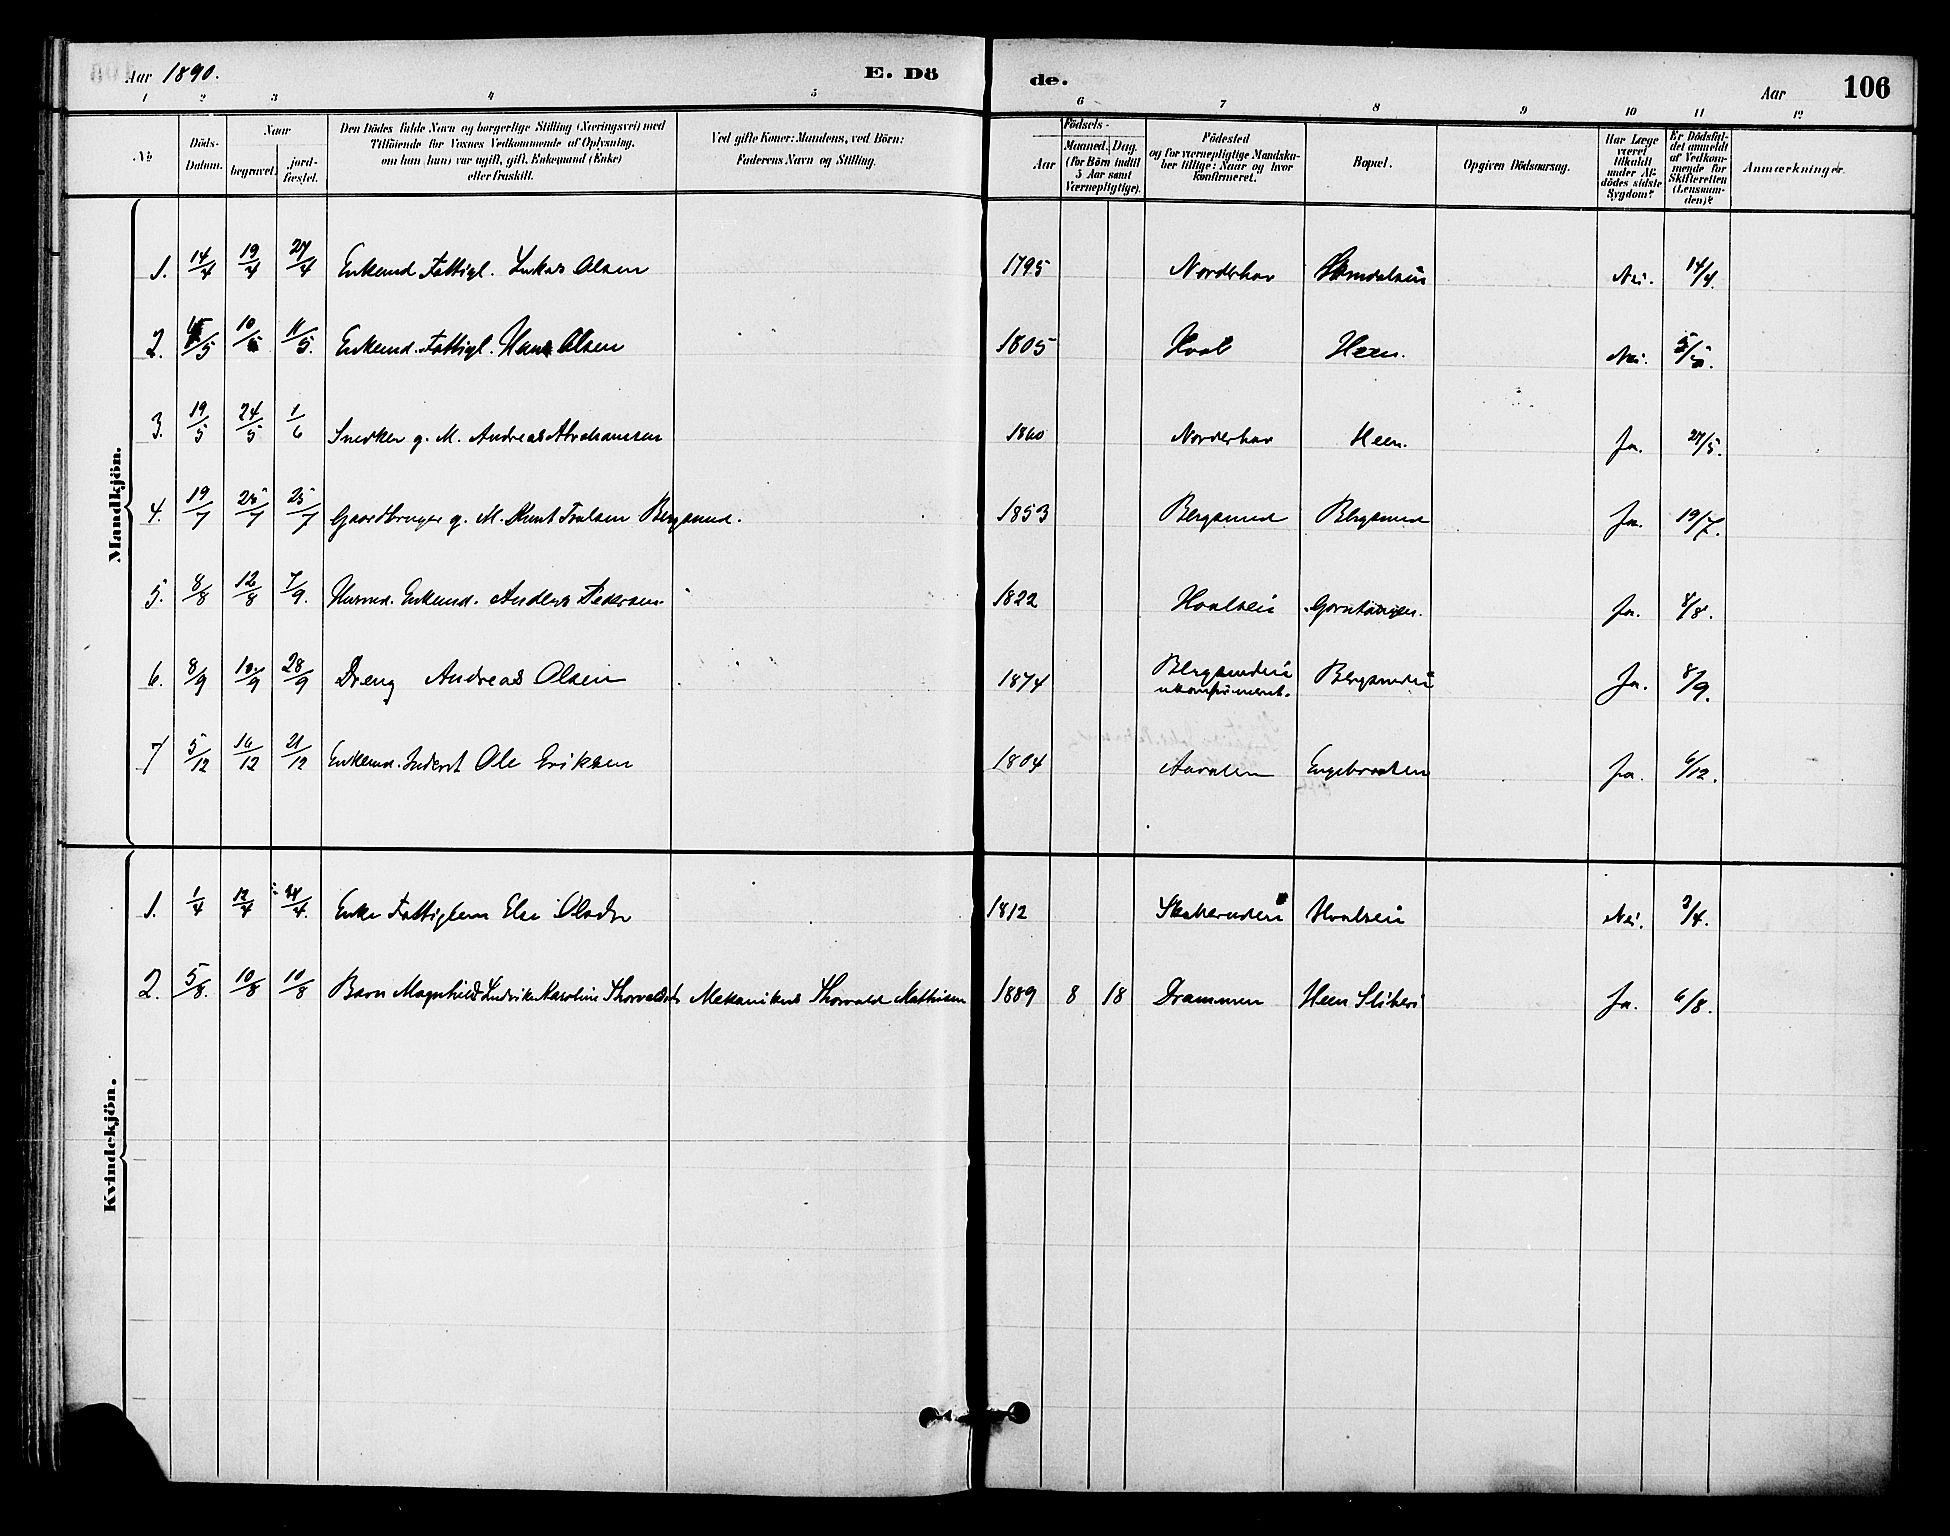 Aar 1890.
E. Dö
de.
Aar
106
1 2 3 4 5 6 7 8 9 10 11 12
No
Döds-
Datum.
Naar
begravet.
jord-
fæstet.
Den Dödes fulde Navn og borgerlige Stilling (Næringsvei) med
Tilföiende for Voxnes Vedkommende af Oplysning,
om han (hun) var ugift, gift, Enkemand (Enke)
eller fraskilt.
Ved gifte Koner: Mandens, ved Börn:
Faderens Navn og Stilling.
Födsels-
Aar
Maaned. Dag.
(for Börn indtil
5 Aar samt
Værnepligtige).
Födested
og for værnepligtige Mandska-
ber tillige: Naar og hvor
konfirmeret.
Bopæl.
Opgiven Dödsaarsag.
Har Læge
været
tilkaldt
under Af-
dödes sidste
Sygdom?
Er Dödsfal-
det anmeldt
af Vedkom-
mende for
Skifteretten
(Lensman-
den)?
Anmærkninger.
Mandkjön.
1. 14/4 19/4 27/4 Enkemd Fattigl. Lukas Olsen 1795 Norderhov Nei. 14/4.
2. 5/5 10/5 11/5. Enkemd. Fattigl. Hans Olsen 1805 Hval Heen. Nei. 5/5.
3. 19/5 24/5 1/6 Snedker g. M. Andreas Abrahamsen 1860 Norderhov Heen. Ja. 27/5.
4. 19/7 25/7 25/7 Gaardbruger g. M. Knut Bergsund. 1853 Bergsund Bergsund Ja. 19/7.
5. 8/8 12/8 7/9. Husmd. Enkemd. Anders Pedersen 1822 Hvalseie Ja. 8/8.
6. 8/9 10/9 28/9 Dreng Andreas Olsen 1874 Bergsundeie
ukonfirmeret. Bergsundeie Ja. 8/9.
7 5/12 16/12 21/12 Enkemd. Inderst Ole Eriksen 1804 Aadalen Engebraaten Ja. 6/12.
Kvindekjön.
1. 1/4 12/4 24/4. Enke Fattiglem Else Olsdtr 1812 Hvalseie Nei. 3/4.
2. 5/8. 10/8 10/8 Barn Magnhild Ludvika Karoline Thorvaldsdtr Mekanikus Thorvald Mathisen 1889 8 18 Drammen Heen Sliberi Ja. 6/8.